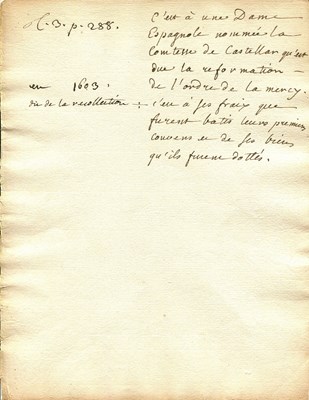 H. 3. p. 288.
C'est à une Dame
Espagnole nommée la
Comtesse de Castellar qu'est
due la reformation
en 1603.
de l'ordre de la mercy.
dit de la recollection
c'en à ses fraix que
furent batis leurs premiers
couvens et de ses biens
qu'ils furent dottés.